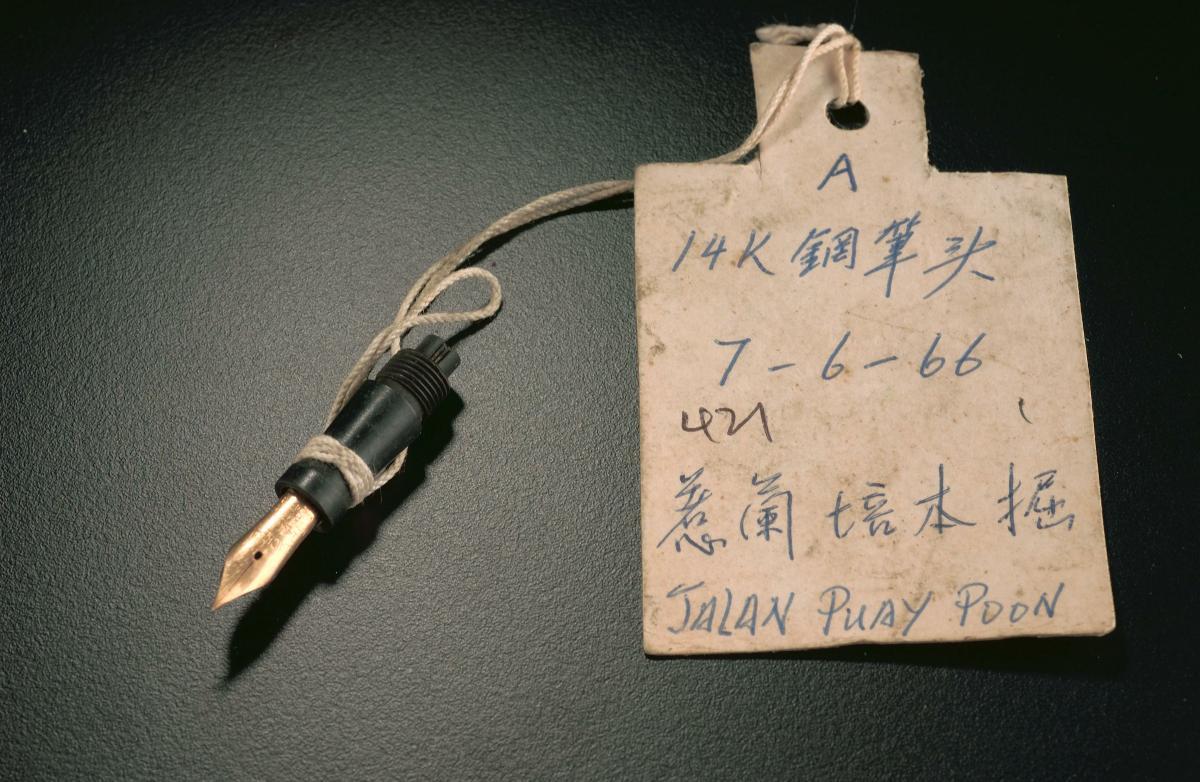 A
14K 鋼筆头
7-6-66
421
惹蘭 培本 掘
JALAN PUAY POON